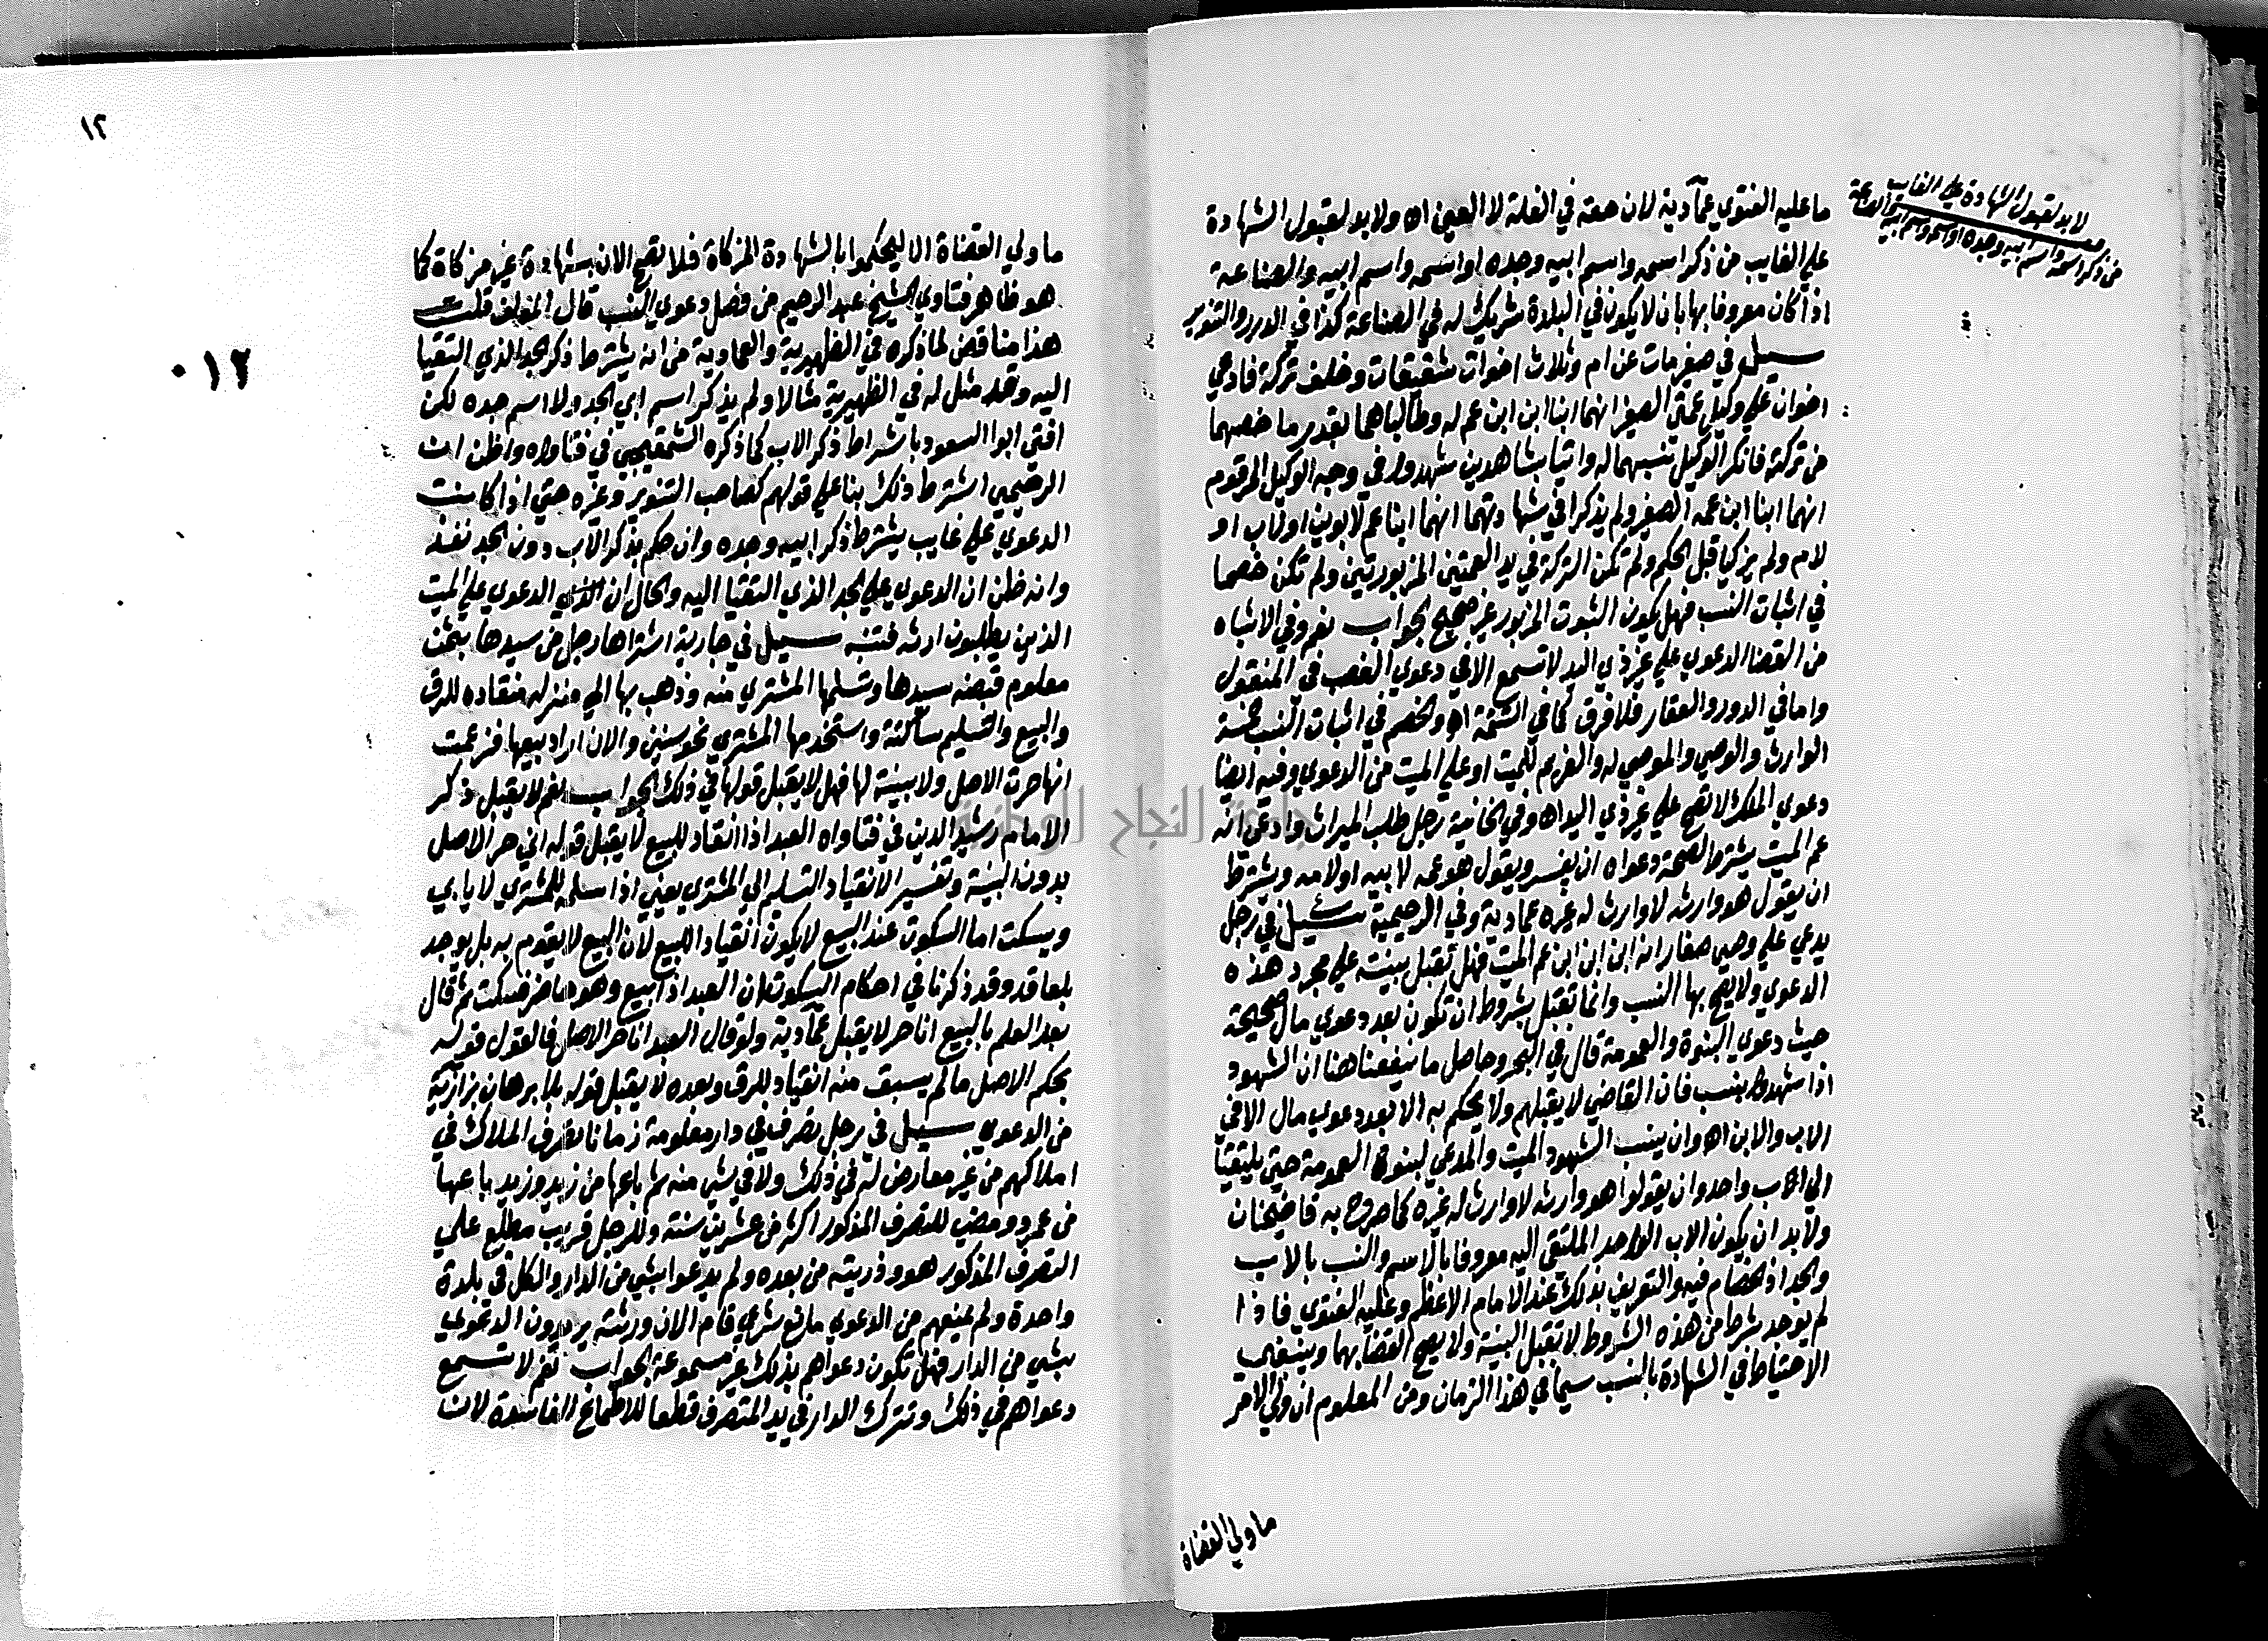 ما عليه الفتوي عمادية لان حقه في الغلة لا العين اه ولا بد لقبول الشهادة
علي الغايب من ذكر اسمه واسم ابيه وجده او اسمه واسم ابيه والصناعة
اذا كان معروفا بها بان لا يكون في البلدة شريك له في الصناعة كذا في الدرر والتنوير
سيل في صغير مات عن ام وثلاث اخوات شقيقات وخلف تركة فادعي
اخوان علي وكيل عمتي الصغير انهما ابنا ابن ابن عم له وطالباهما بقدر ما خصهما
من تركته فانكر الوكيل نسبهما له واتيا بشاهدين شهدوا في وجه الوكيل المرقوم
انهما ابنا ابن عمه الصغير ولم يذكرا في شهادتهما انهما ابنا عم لابوين او لاب او
لام ولم يزكيا قبل الحكم ولم تكن التركة في يد العمتين المزبورتين ولم تكن خصما
في اثبات النسب فهل يكون الثبوت المزبور غير صحيح الجواب نعم وفي الاشباه
من القضا الدعوي علي غير ذي اليد لا تسمع الا في دعوي الغصب في المنقول
واما في الدور والعقار فلا فرق كما في اليتيمة اه والخصم في اثبات النسب خمسة
الوارث والوصي والموصي له والغريم للميت او علي الميت من الدعوي وفيه ايضا
دعوي الملك لا تصح علي غير ذي اليد اه وفي الخانية رجل طلب الميراث وادعي انه
عم الميت يشترط لصحة دعواه ان يفسر ويقول هو عمه لابيه او لامه ويشترط
ان يقول هو وارثه لا وارث له غيره عمادية وفي الرحيمية سيل في رجل
يدعي علي وصي صغار انه ابن ابن ابن عم الميت فهل تقبل بينته علي مجرد هذه
الدعوي ولا يصح بها النسب وانما تقبل بشروط ان تكون بعد دعوي مال صحيحة
حيث دعوي البنوة والعمومة قال في البحر وحاصل ما ينفعنا هنا ان الشهود
اذا شهدوا بنسب فان القاضي لا يقبلهم ولا يحكم به الا بعد دعوي مال الا في
الاب والابن اه وان ينسب الشهود الميت والمدعي لبنوة العمومة حتي يلتقيا
الي اب واحد وان يقولوا هو وارثه لا وارث له غيره كما صرح به قاضيخان
ولا بد ان يكون الاب الواحد الملتقي اليه معروفا بالاسم والنسب بالاب
والجد اذ الخصام فيه والتعريف بذلك عند الامام الاعظم وعليه الفتوي فاذا
لم يوجد شرط من هذه الشروط لا تقبل البينة ولا يصح القضا بها وينبغي
الاحتياط في الشهادة بالنسب سيما في هذا الزمان ومن المعلوم ان ولي الامر
ما ولي القضاة
لا بد لقبول الشهادة علي الغايب
من ذكر اسمه واسم ابيه وجده او اسمه واسم ابيه والصناعة
١٢
٠١٢
ما ولي القضاة الا ليحكموا بالشهادة المزكاة فلا تصح الان بشهادة غير مزكاة كما
هو ظاهر فتاوي الشيخ عبد الرحيم من فصل دعوي النسب قال المولف قلت
هذا مناقض لما ذكره في الظهيرية والعمادية من انه يشترط ذكر الجد الذي التقيا
اليه وقد مثل له في الظهيرية مثالا ولم يذكر اسم ابي الجد ولا اسم جده لكن
افتي ابو السعود باشتراط ذكر الاب كما ذكره الشمقيجي في فتاواه واظن ان
الرحيمي اشترط ذلك بنا علي قولهم كصاحب التنوير وغيره حتي اذا كانت
الدعوي علي غايب يشترط ذكر ابيه وجده وان حكم بذكر الاب دون الجد نفذ
وانه ظن ان الدعوي علي الجد الذي التقيا اليه والحال ان الدعوي علي الميت
الذين يطلبون ارثه فتنبه سيل في جارية اشتراها رجل من سيدها بثمن
معلوم قبضه سيدها وتسلمها المشتري منه وذهب بها الي منزله منقاده للرق
والبيع والتسليم ساكتة واستخدمها المشتري نحو سنين والان اراد بيعها فزعمت
انها حرة الاصل ولا بينة لها فهل لا يقبل قولها في ذلك الجواب نعم لا يقبل ذكر
الامام رشيد الدين في فتاواه العبد اذا انقاد للبيع لا يقبل قوله اني حر الاصل
بدون البينة وتفسير الانقياد التسليم الي المشتري يعني اذا سلمه للمشتري لا يابي
ويسكت اما السكوت عند البيع لا يكون انقيادا للبيع لان البيع لا يقوم به بل يوجد
بلعاقد وقد ذكرنا في احكام السكوت ان العبد اذا بيع وهو حاضر فسكت ثم قال
بعد العلم بالبيع انا حر لا يقبل عمادية ولو قال العبد انا حر الاصل فالقول قوله
بحكم الاصل ما لم يسبق منه انقياد للرق وبعده لا يقبل قوله بلا برهان بزازية
من الدعوي سيل في رجل تصرف في دار معلومة زمانا تصرف الملاك في
املاكهم من غير معارض له في ذلك ولا في شي منه ثم باعها من زيد وزيد باعها
من عمرو ومضي للتصرف المذكور اكثر من عشرين سنة وللرجل قريب مطلع علي
التصرف المذكور هو وذريته من بعده ولم يدعوا بشي من الدار والكل في بلدة
واحدة ولم يمنعهم من الدعوي مانع شرعي قام الان ورثته يريدون الدعوي
بشي من الدار فهل تكون دعواهم بذلك غير مسموعة الجواب نعم لا تسمع
دعواهم في ذلك وتترك الدار في يد المتصرف قطعا للاطماع الفاسدة لان
جامعة النجاح الوطنية